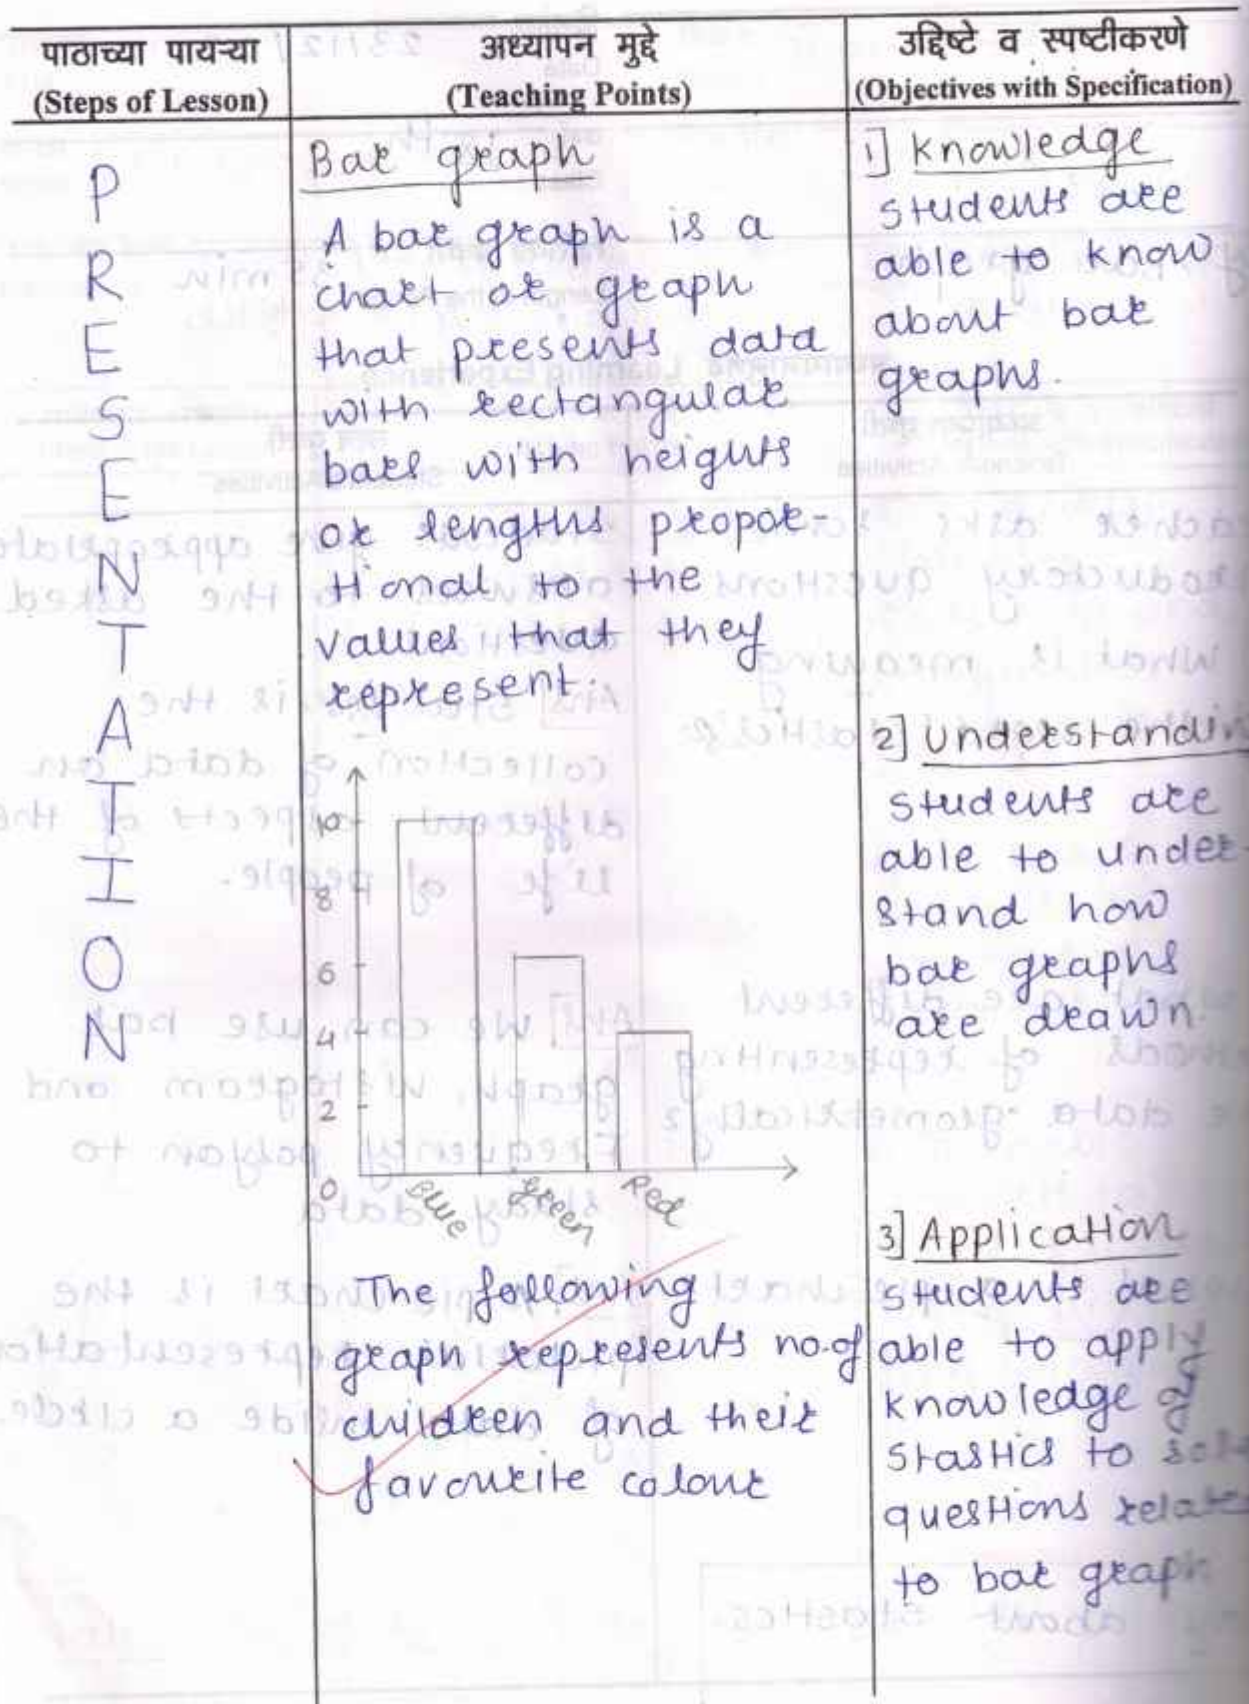 पाठाच्या पायऱ्या
(Steps of Lesson)
अध्यापन मुद्दे
(Teaching Points)
उद्दिष्टे व स्पष्टीकरणे
(Objectives with Specification)
PRESENTATION
Bar graph
A bar graph is a
chart or graph
that presents data
with rectangular
bars with heights
or lengths propor-
tional to the
values that they
represent.
10
8
6
4
2
0
Blue
green
Red
The following
graph represents no. of
children and their
favourite colour
1] Knowledge
Students are
able to know
about bar
graphs.
2] Understandin
Students are
able to under-
stand how
bar graphs
are drawn.
3] Application
Students are
able to apply
knowledge of
Stastics to
questions relate
to bar graph